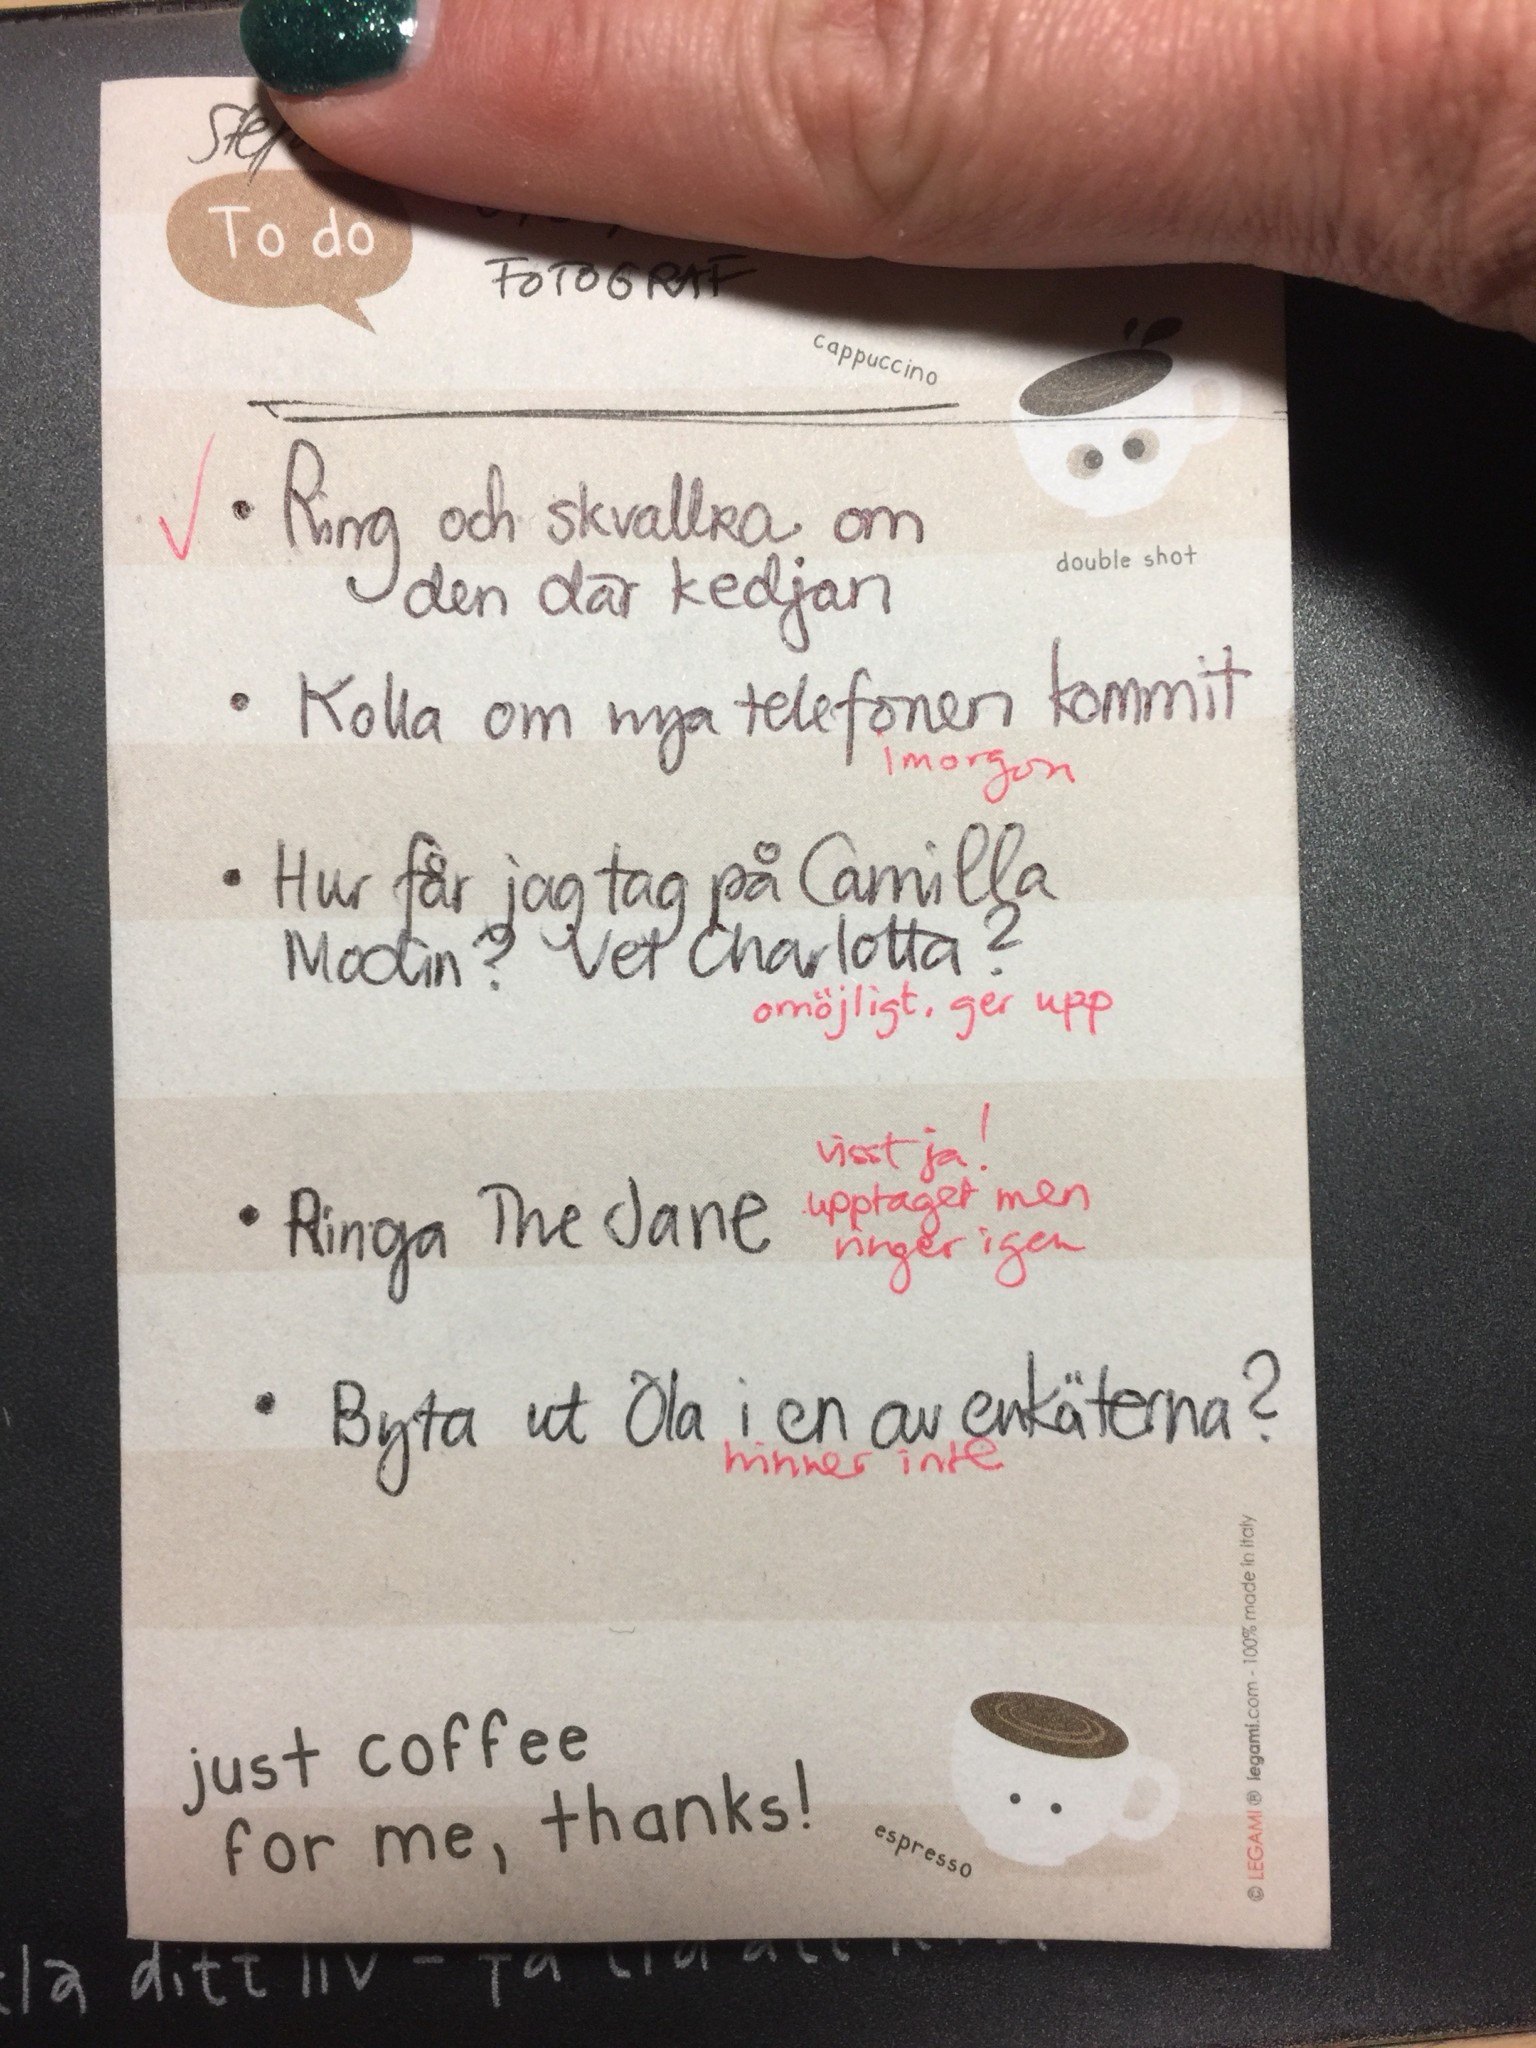 To do
FOTOGRAF
cappuccino
double shot
• Ring och skvallra om
den där kedjan
• Kolla om nya telefonen kommit
imorgon
• Hur får jag tag på Camilla
Modin? Vet Charlotta?
omöjligt. ger upp
visst ja!
• Ringa The Jane upptaget men
ringer igen
• Byta ut Ola i en av enkäterna?
hinner inte
just coffee
for me, thanks!
espresso
© LEGAMI® legami.com - 100% made in italy
ditt liv -